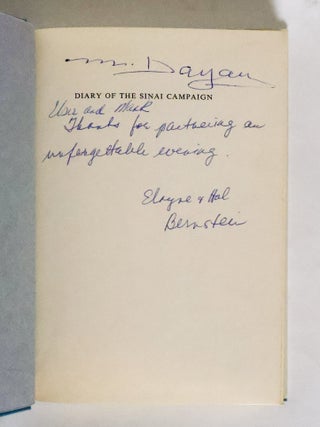 M. Dayan
DIARY OF THE SINAI CAMPAIGN
and Mark
Thanks for partnering an
unforgettable evening.
Elayne & Hal
Bernstein